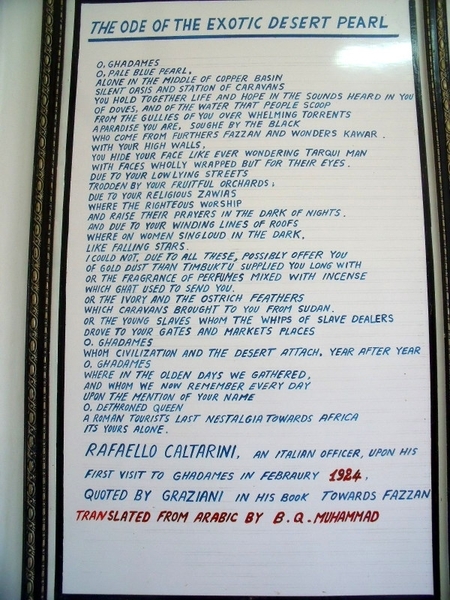 THE ODE OF THE EXOTIC DESERT PEARL
O, GHADAMES
O, PALE BLUE PEARL,
ALONE IN THE MIDDLE OF COPPER BASIN
SILENT OASIS AND STATION OF CARAVANS
YOU HOLD TOGETHER LIFE AND HOPE IN THE SOUNDS HEARD IN YOU
OF DOVES, AND OF THE WATER THAT PEOPLE SCOOP
FROM THE GULLIES OF YOU OVER WHELMING TORRENTS
APARADISE YOU ARE, SOUGHE BY THE BLACK
WHO COME FROM FURTHERS FAZZAN AND WONDERS KAWAR.
WITH YOUR HIGH WALLS,
YOU HIDE YOUR FACE LIKE EVER WONDERING TARQUI MAN
WITH FACES WHOLLY WRAPPED BUT FOR THEIR EYES.
DUE TO YOUR LOW LYING STREETS
TRODDEN BY YOUR FRUITFUL ORCHARDS;
DUE TO YOUR RELIGIOUS ZAWIAS
WHERE THE RIGHTEOUS WORSHIP
AND RAISE THEIR PRAYERS IN THE DARK OF NIGHTS.
AND DUE TO YOUR WINDING LINES OF ROOFS
WHERE ON WOMEN SINGLOUD IN THE DARK,
LIKE FALLING STARS.
I COULD NOT, DUE TO ALL THESE, POSSIBLY OFFER YOU
OF GOLD DUST THAN TIMBUKTU SUPPLIED YOU LONG WITH
OR THE FRAGRANCE OF PERFUMES MIXED WITH INCENSE
WHICH GHAT USED TO SEND YOU.
OR THE IVORY AND THE OSTRICH FEATHERS
WHICH CARAVANS BROUGHT TO YOU FROM SUDAN.
OR THE YOUNG SLAVES WHOM THE WHIPS OF SLAVE DEALERS
DROVE TO YOUR GATES AND MARKETS PLACES
O. GHADAMES
WHOM CIVILIZATION AND THE DESERT ATTACH. YEAR AFTER YEAR
O. GHADAMES
WHERE IN THE OLDEN DAYS WE GATHERED,
AND WHOM WE NOW REMEMBER EVERY DAY
UPON THE MENTION OF YOUR NAME
O. DETHRONED QUEEN
A ROMAN TOURISTS LAST NESTALGIA TOWARDS AFRICA
ITS YOURS ALONE.
RAFAELLO CALTARINI, AN ITALIAN OFFICER, UPON HIS
FIRST VISIT TO GHADAMES IN FEBRAURY 1924,
QUOTED BY GRAZIANI IN HIS BOOK TOWARDS FAZZAN
TRANSLATED FROM ARABIC BY B.Q.MUHAMMAD